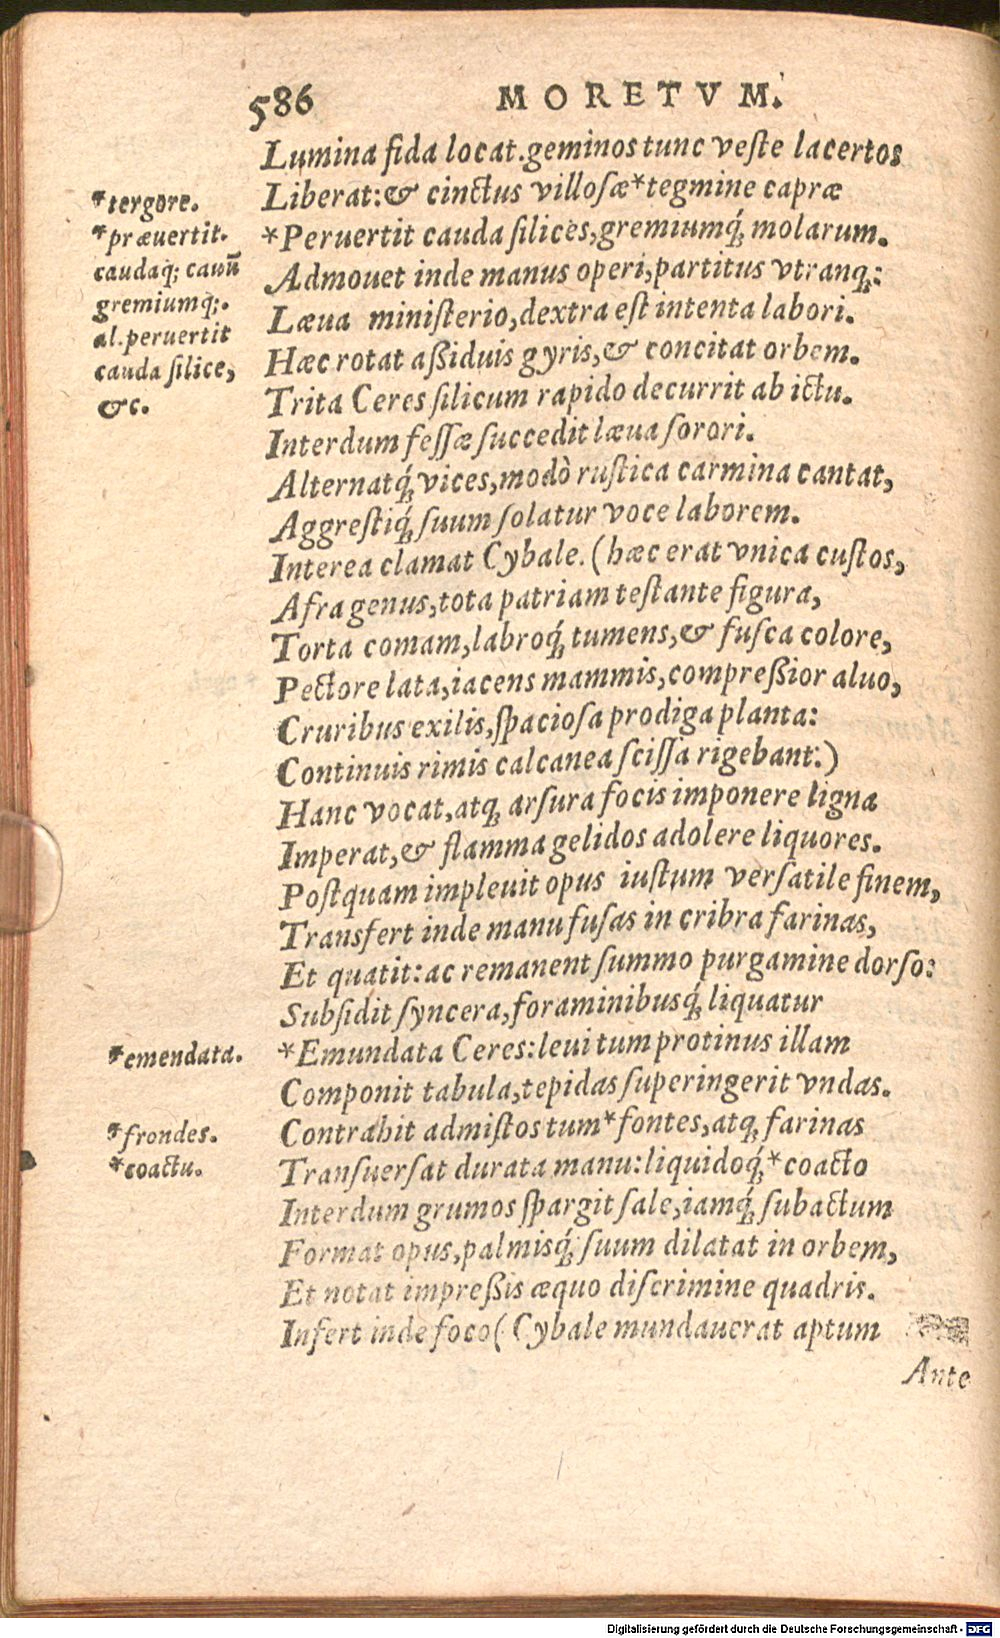 586 MORETVM.
Lumina fida locat. geminos tunc veſte lacertos
Liberat: & cinctus villoſæ *tegmine capræ
*tergore.
*Peruertit cauda ſilices, gremiumq́; molarum.
*præuertit.
caudaq́; cauū
gremiumq́;.
al. peruertit
cauda ſilice,
&c.
Admouet inde manus operi, partitus vtranq;:
Læua miniſterio, dextra eſt intenta labori.
Hæc rotat aßiduis gyris, & concitat orbem.
Trita Ceres ſilicum rapido decurrit ab ictu.
Interdum feſſæ ſuccedit læua ſorori.
Alternatq́; vices, modò ruſtica carmina cantat,
Aggreſtiq́; ſuum ſolatur voce laborem.
Interea clamat Cybale. (hæc erat vnica cuſtos,
Afra genus, tota patriam teſtante figura,
Torta comam, labroq́; tumens, & fuſca colore,
Pectore lata, iacens mammis, compreßior aluo,
Cruribus exilis, ſpacioſa prodiga planta:
Continuis rimis calcanea ſciſſa rigebant:)
Hanc vocat, atq; arſura focis imponere ligna
Imperat, & flamma gelidos adolere liquores.
Poſtquam impleuit opus iuſtum verſatile finem,
Transfert inde manu fuſas in cribra farinas,
Et quatit: ac remanent ſummo purgamine dorſo:
Subſidit ſyncera, foraminibusq́; liquatur
*Emundata Ceres: leui tum protinus illam
*emendata.
Componit tabula, tepidas ſuperingerit vndas.
Contrahit admiſtos tum *fontes, atq; farinas
*frondes.
Tranſuerſat durata manu: liquidoq́; *coacto
*coactu.
Interdum grumos ſpargit ſale, iamq́; ſubactum
Format opus, palmisq́; ſuum dilatat in orbem,
Et notat impreßis æquo diſcrimine quadris.
Infert inde foco (Cybale mundauerat aptum
Ante
Digitalisierung gefördert durch die Deutsche Forschungsgemeinschaft - DFG